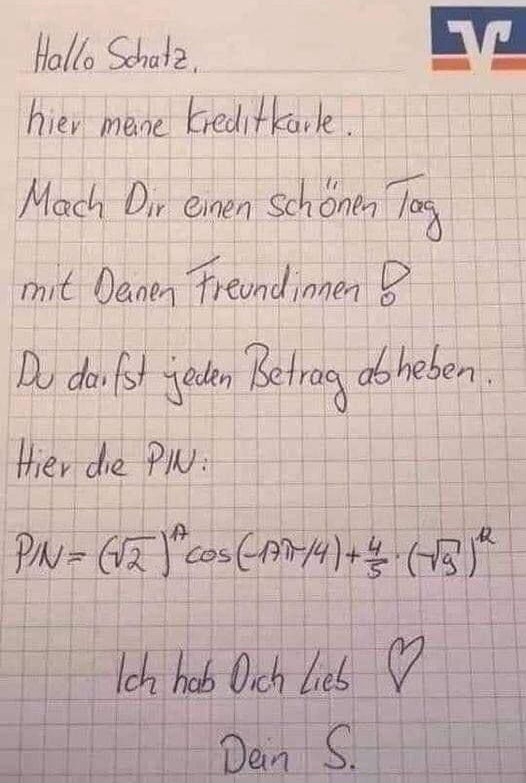 Hallo Schatz,
hier meine Kreditkarte.
Mach Dir einen schönen Tag
mit Deinen Freundinnen!
Du darfst jeden Betrag abheben.
Hier die PIN:
PIN = (√2)^17 cos(-17π/4) + 4/5 · (-√5)^12
Ich hab Dich lieb ♡
Dein S.